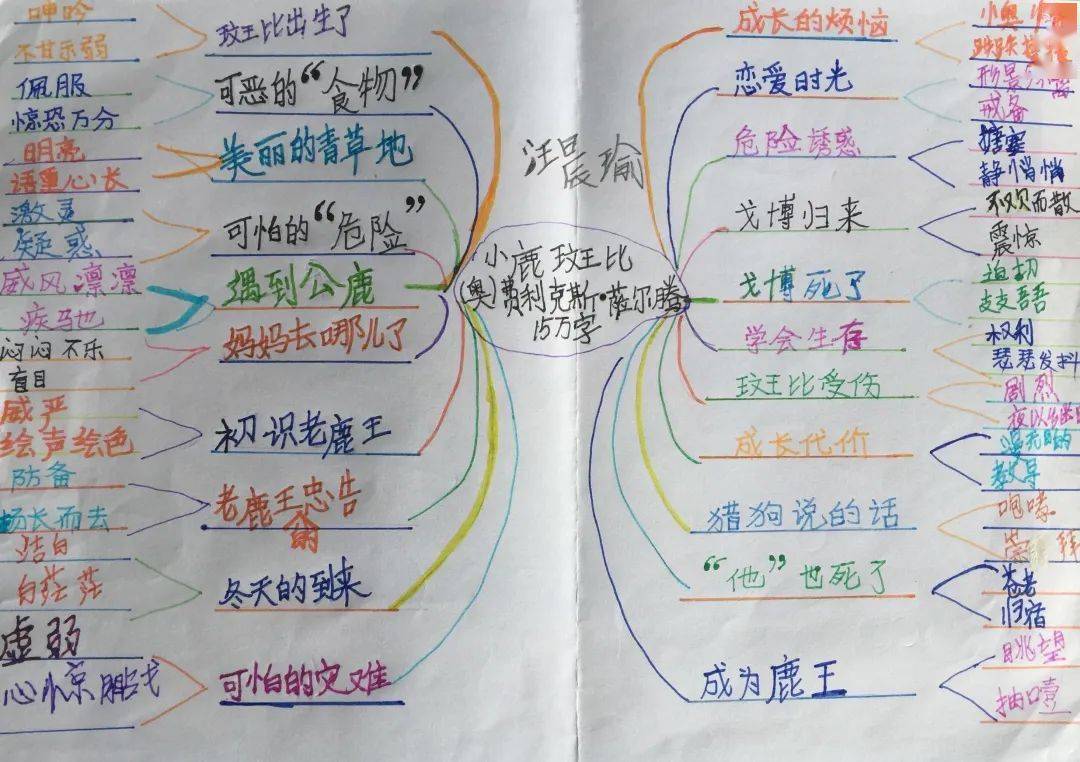 汪晨瑜
小鹿玟王比
(奥)费利克斯·萨尔腾
15万字
玟王比出生了
呻吟
不甘示弱
可恶的“食物”
佩服
惊恐万分
美丽的青草地
明亮
语重心长
可怕的“危险”
激灵
疑惑
遇到公鹿
威风凛凛
疾马也
妈妈去哪儿了
闷闷不乐
盲目
初识老鹿王
威严
绘声绘色
老鹿王的忠告
防备
扬长而去
冬天的到来
洁白
白茫茫
可怕的灾难
虚弱
心惊胆战
成长的烦恼
恋爱时光
戒备
危险诱惑
搪塞
静悄悄
戈博归来
不欢而散
震惊
戈博死了
迫切
支支吾吾
学会生存
权利
瑟瑟发抖
玟王比受伤
剧烈
成长代价
教导
猎狗说的话
咆哮
“他”也死了
苍老
归宿
成为鹿王
眺望
抽噎